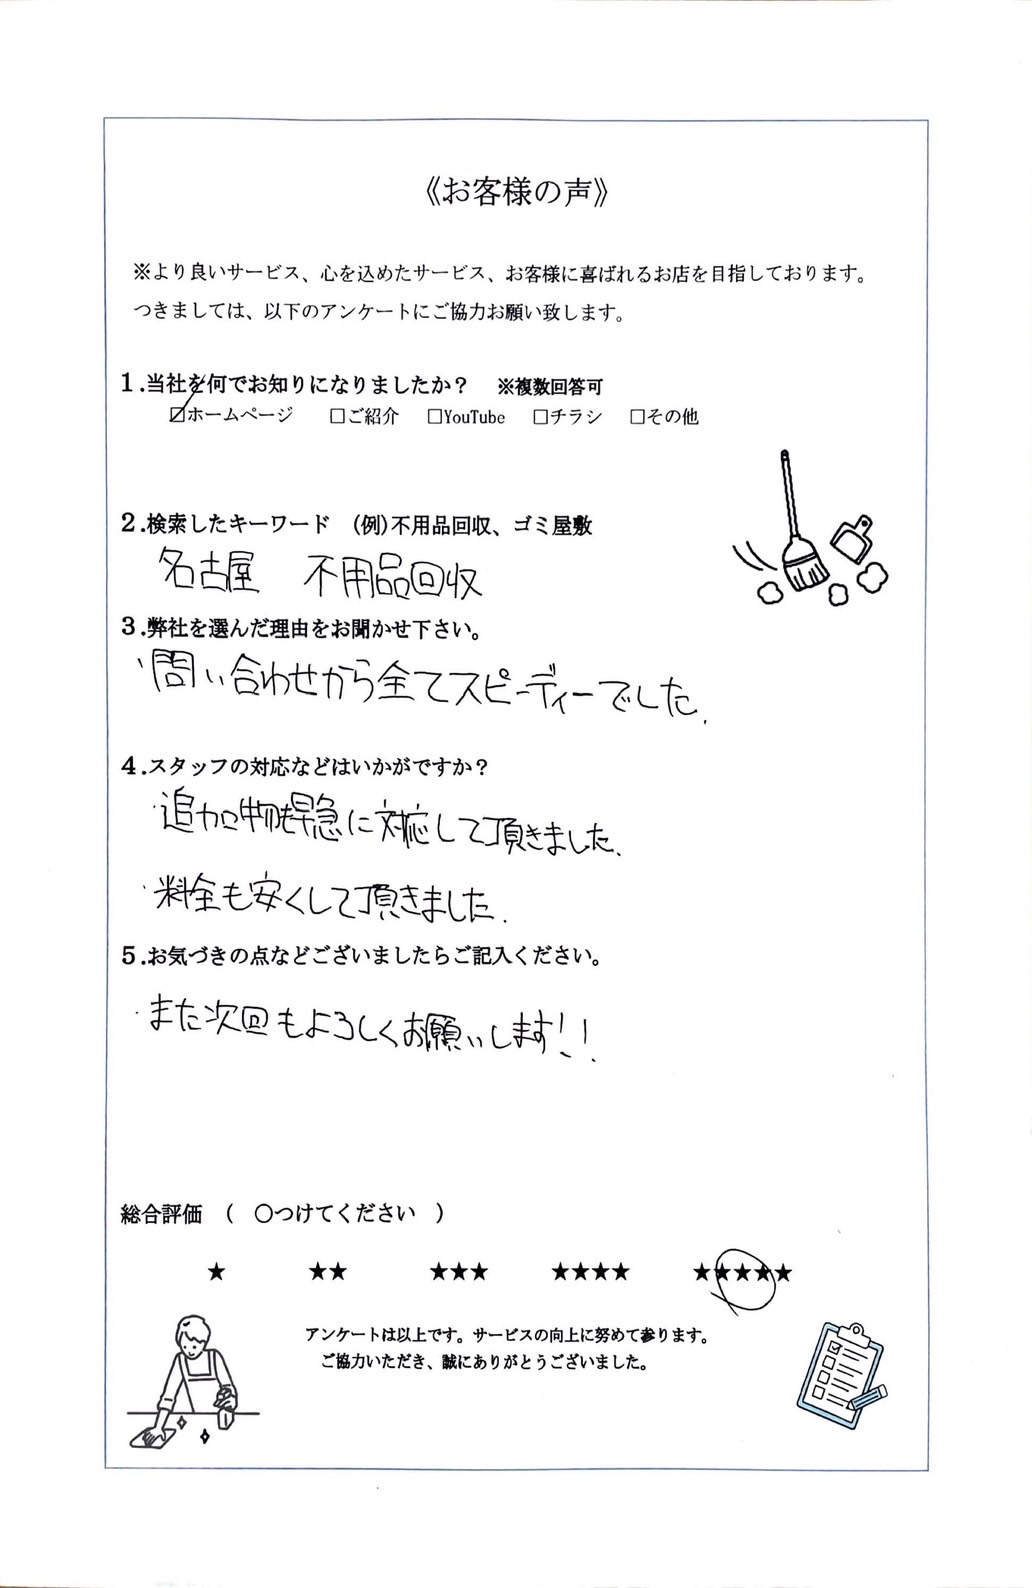 《お客様の声》
※より良いサービス、心を込めたサービス、お客様に喜ばれるお店を目指しております。
つきましては、以下のアンケートにご協力お願い致します。
1.当社を何でお知りになりましたか？ ※複数回答可
☑ホームページ □ご紹介 □YouTube □チラシ □その他
2.検索したキーワード (例)不用品回収、ゴミ屋敷
名古屋 不用品回収
3.弊社を選んだ理由をお聞かせ下さい。
・問い合わせから全てスピーディーでした.
4.スタッフの対応などはいかがですか？
・追加物も早急に対応して頂きました、
・料金も安くして頂きました.
5.お気づきの点などございましたらご記入ください。
・また次回もよろしくお願いします!!
総合評価 ( ○つけてください )
★ ★★ ★★★ ★★★★ ★★★★★
アンケートは以上です。サービスの向上に努めて参ります。
ご協力いただき、誠にありがとうございました。